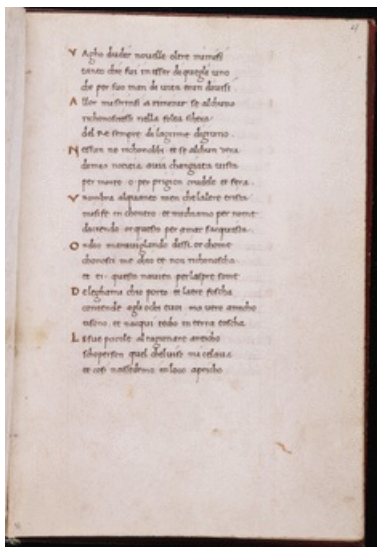 4
V Agho dudir nouelle oltre mirai si
tanto chio fui in esser di quegli uno
che per suo man di uita eran diuisi
A llor mistrinsi a rimirar se alchuno
richonoscessi nella folta schiera
del Re sempre di lagrime digiuno
N essun ne richonobbi et se alchun uera
di mia notitia auia changiata uista
per morte o per prigion crudele et fera
V nombra alquanto men che laltre trista
misife in chontro et mi chiamo per nome
dicendo or questo per amar sacquista
O ndio marauigliando dissi or chome
chonosci me chio te non richonoscha
et ei questo mauien per laspre some
D e leghami chio porto et laere foscha
contende agli ochi tuoi ma uero amicho
ti sono et nacqui techo in terra toscha
L e sue parole el ragionare anticho
schoperson quel chel uiso mi celaua
et cosi in loco apricho